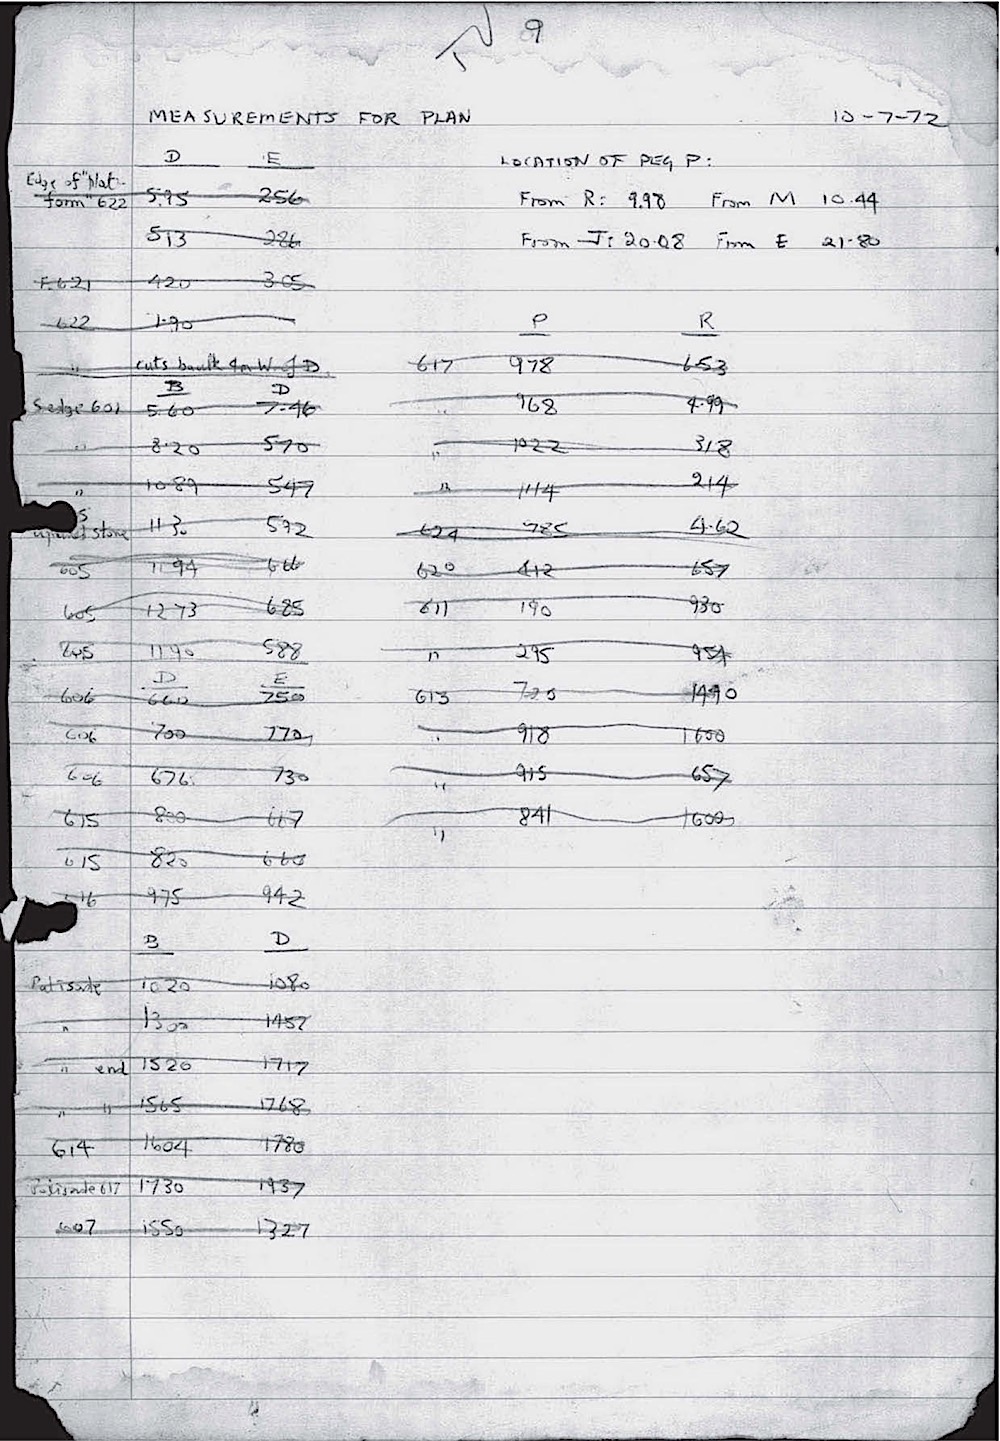 9
MEASUREMENTS FOR PLAN 10-7-72
D E
Edge of "plat-
form" 622 5.95 256
513 286
F.621 420 305
622 1.90
" cuts baulk 4m W. of D
B D
S edge 601 5.60 7.46
" 8.20 570
" 1089 547
S
stone 1130 592
605 1194 666
605 1273 685
605 1190 588
D E
606 660 750
606 700 770
606 676 730
615 800 667
615 820 660
616 975 942
B D
Palisade 1020 1080
" 1300 1457
" end 1520 1717
" " 1565 1768
614 1604 1780
Palisade 617 1730 1937
607 1550 1327
LOCATION OF PEG P:
From R: 9.98 From M 10.44
From J: 20.08 From E 21.80
P R
617 978 653
" 968 4.99
" 1022 318
" 1114 214
624 785 4.62
620 412 657
611 190 930
" 295 954
613 720 1490
" 918 1600
" 915 657
" 841 1600